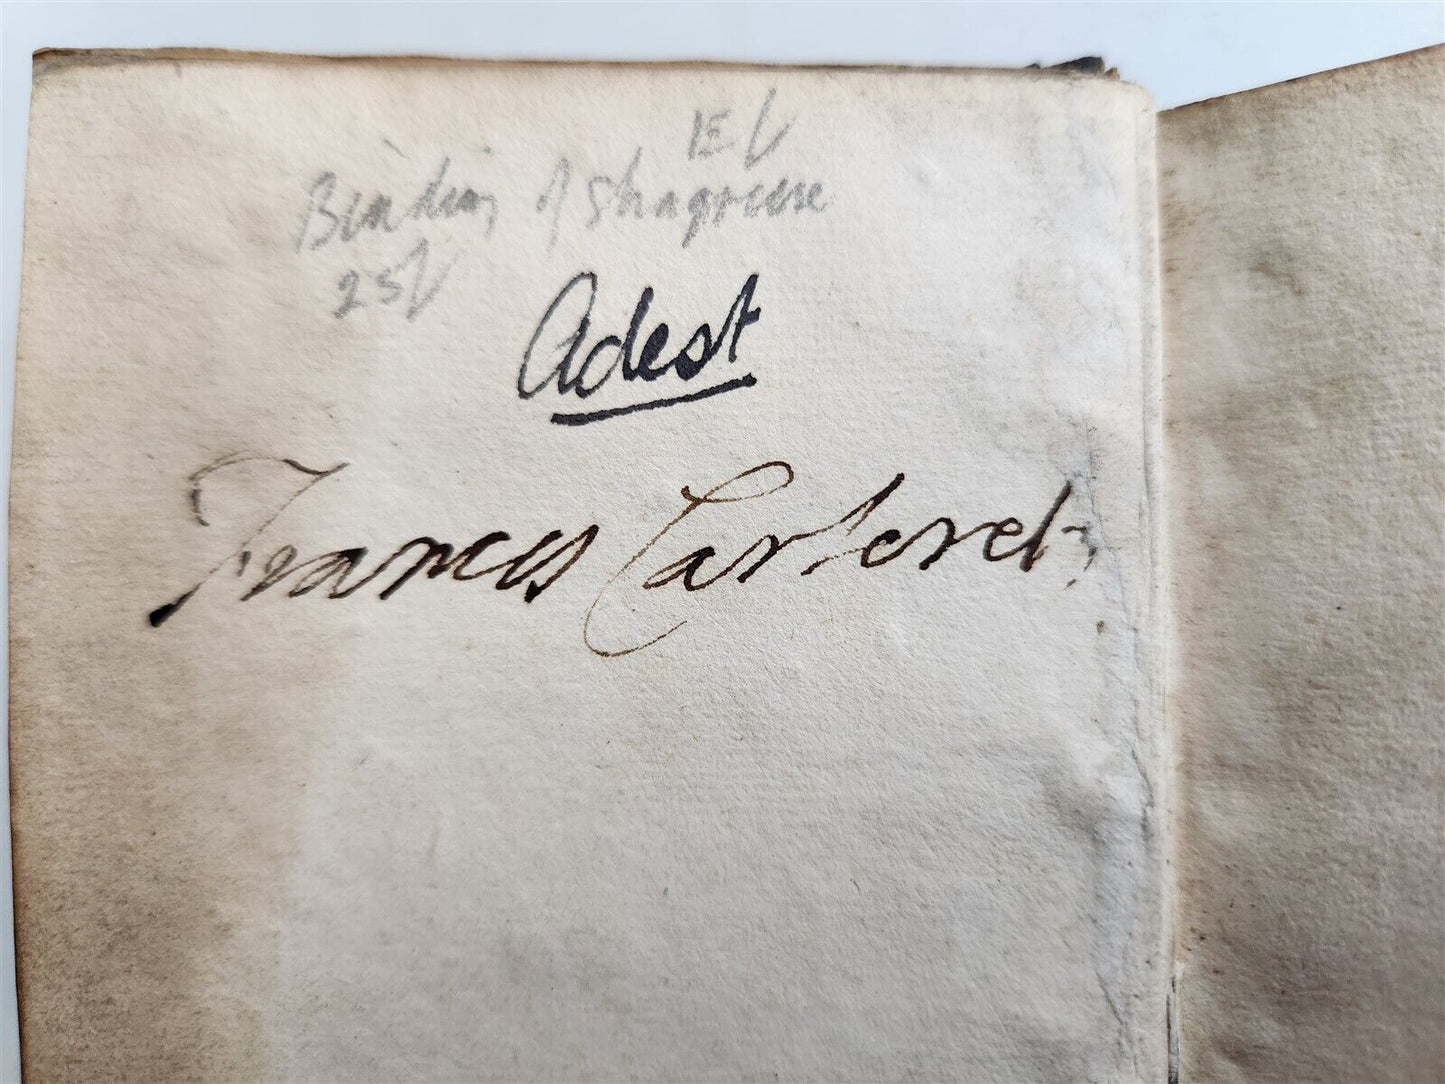 E/
Binding of Shagreene
25/
Adest
Francis Carteret